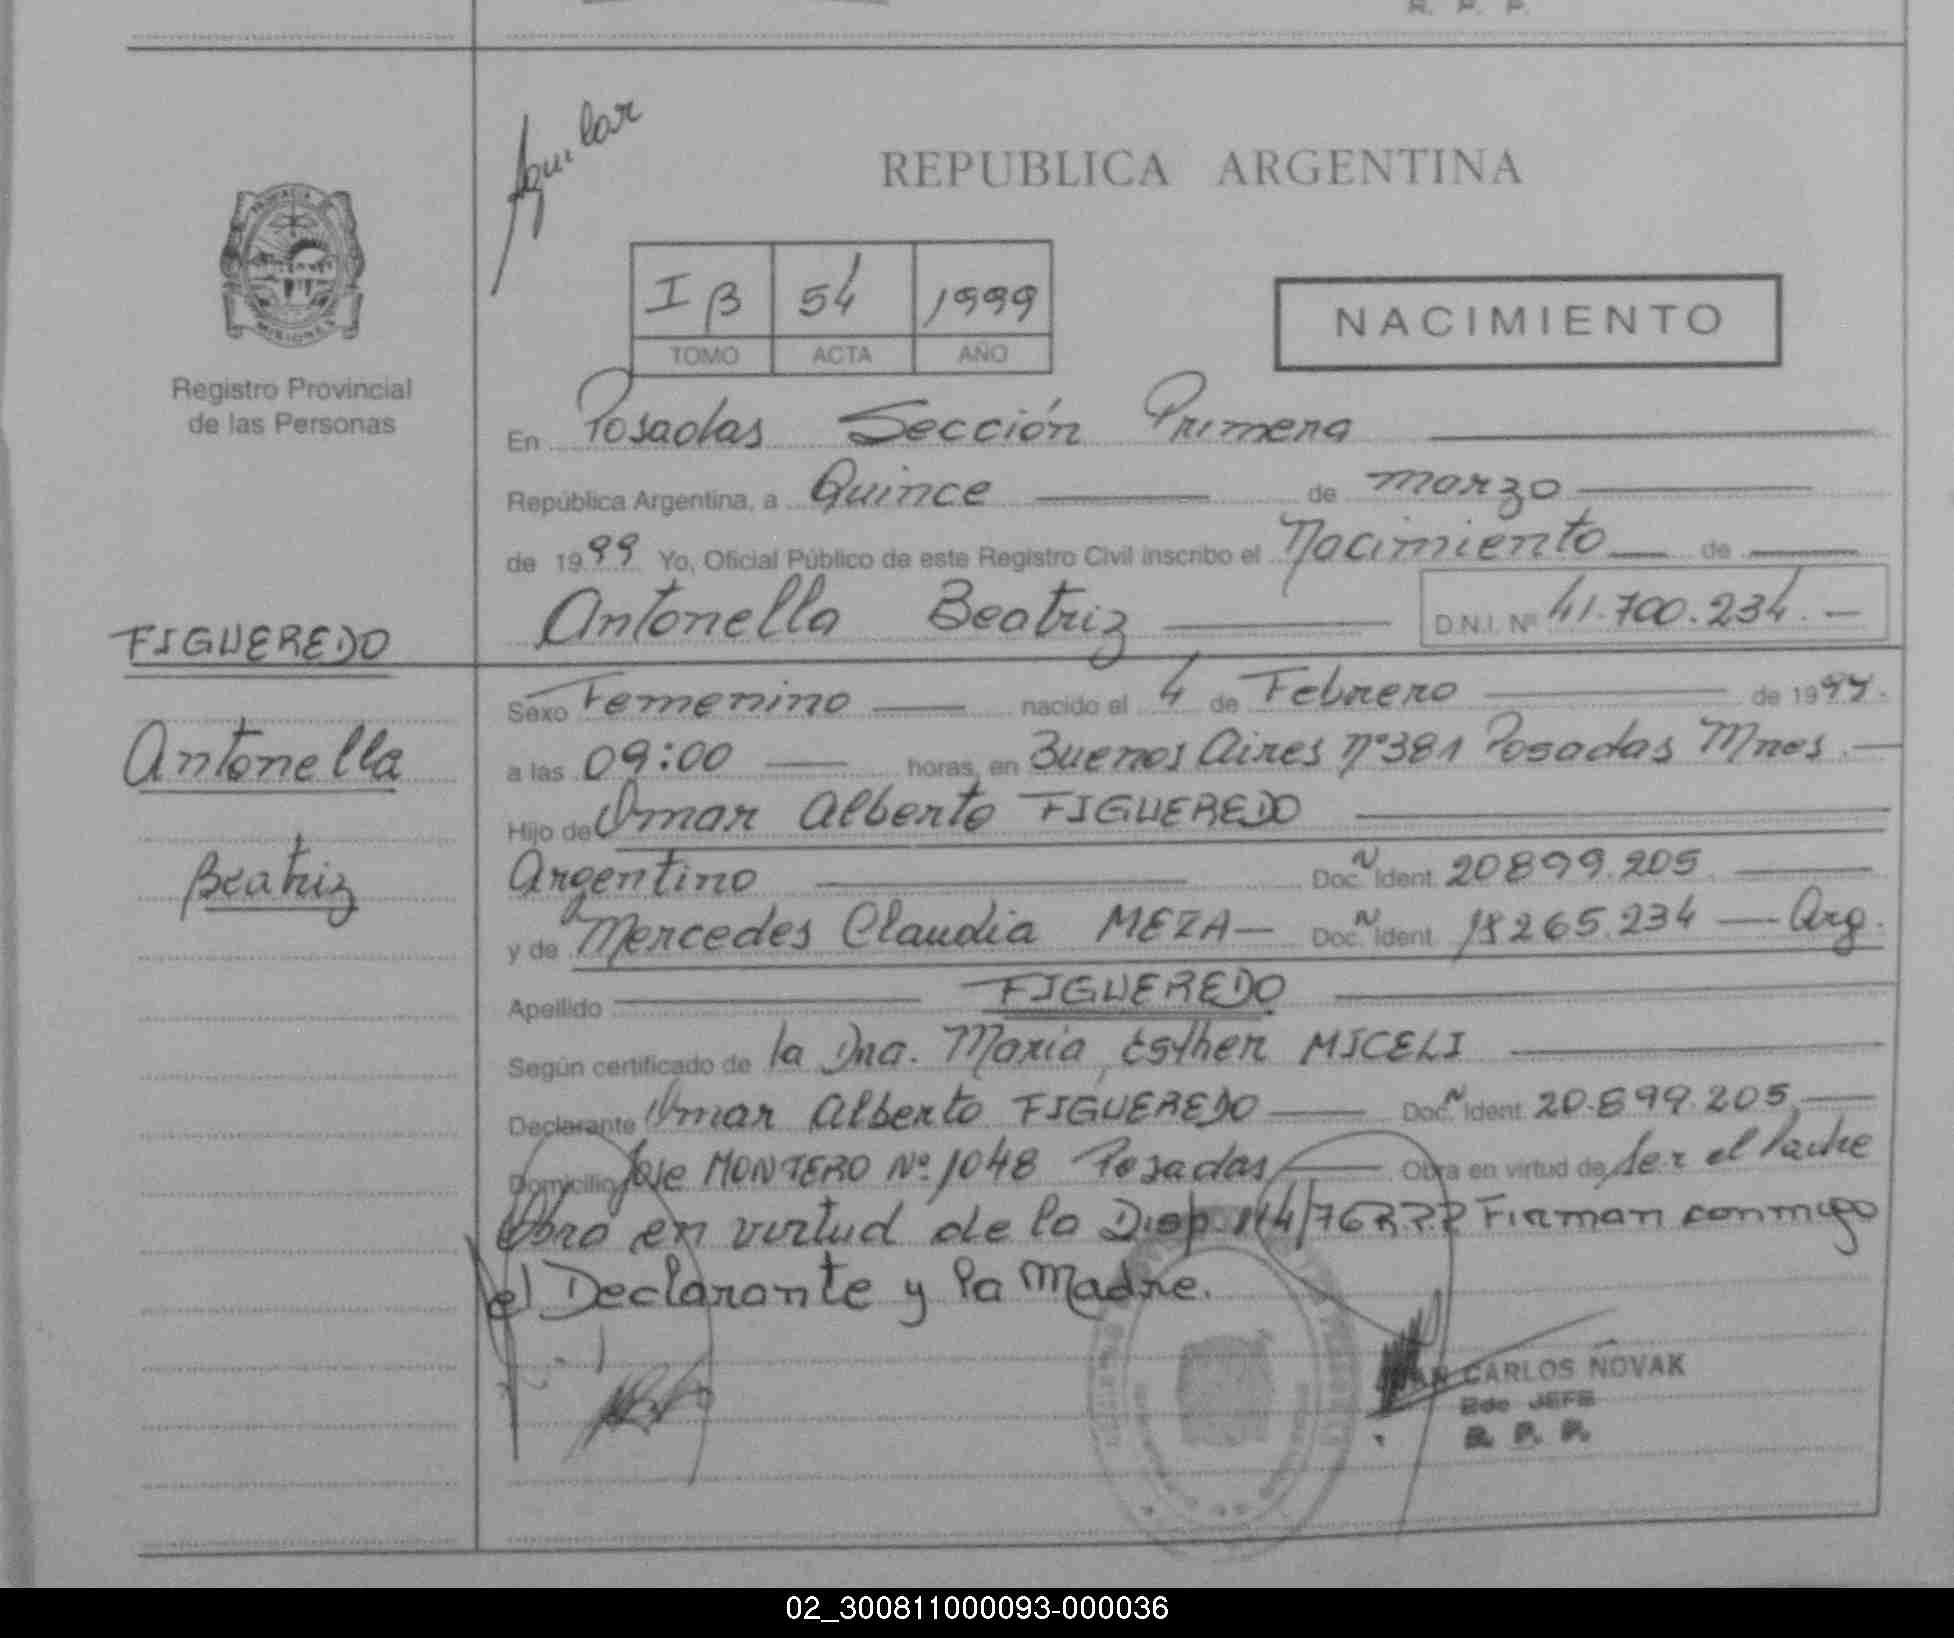 R. P. P.
Aguilar
REPUBLICA ARGENTINA
PROVINCIA DE
MISIONES
Registro Provincial
de las Personas
I B 54 1999
TOMO ACTA AÑO
NACIMIENTO
En Posadas Sección Primera
República Argentina, a Quince de marzo
de 1999 Yo, Oficial Público de este Registro Civil inscribo el Nacimiento de
Antonella Beatriz D.N.I. Nº 41.700.234.-
FIGUEREDO
Antonella
Beatriz
Sexo Femenino nacido el 4 de Febrero de 1999.
a las 09:00 horas, en Buenos Aires Nº381 Posadas Mnes.
Hijo de Omar Alberto FIGUEREDO
Argentino Doc. Ident. 20899.205
y de Mercedes Claudia MEZA Doc. Ident. 18265.234 Arg.
Apellido FIGUEREDO
Según certificado de la Dra. Maria Esther MICELI
Declarante Omar Alberto FIGUEREDO Doc. Ident. 20.899.205
Domicilio Jose MONTERO Nº 1048 Posadas Obra en virtud de Ser el Padre
Obra en virtud de la Disp. 114/76 R.P.P Firman conmigo
el Declarante y la Madre.
CARLOS NOVAK
JEFE
R. P. P.
02_300811000093-000036